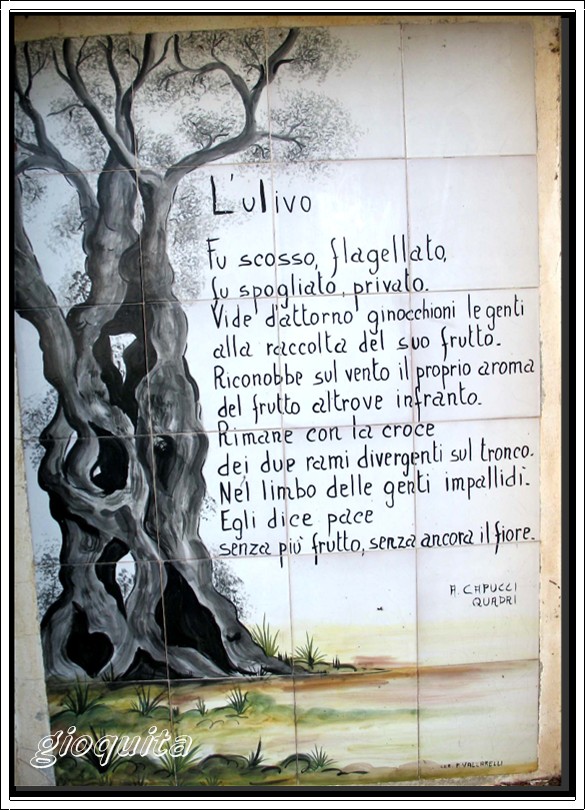 L'ulivo
Fu scosso, flagellato,
fu spogliato, privato.
Vide d'attorno ginocchioni le genti
alla raccolta del suo frutto.
Riconobbe sul vento il proprio aroma
del frutto altrove infranto.
Rimane con la croce
dei due rami divergenti sul tronco.
Nel limbo delle genti impallidì.
Egli dice pace
senza più frutto, senza ancora il fiore.
A. CAPUCCI
QUADRI
gioquita